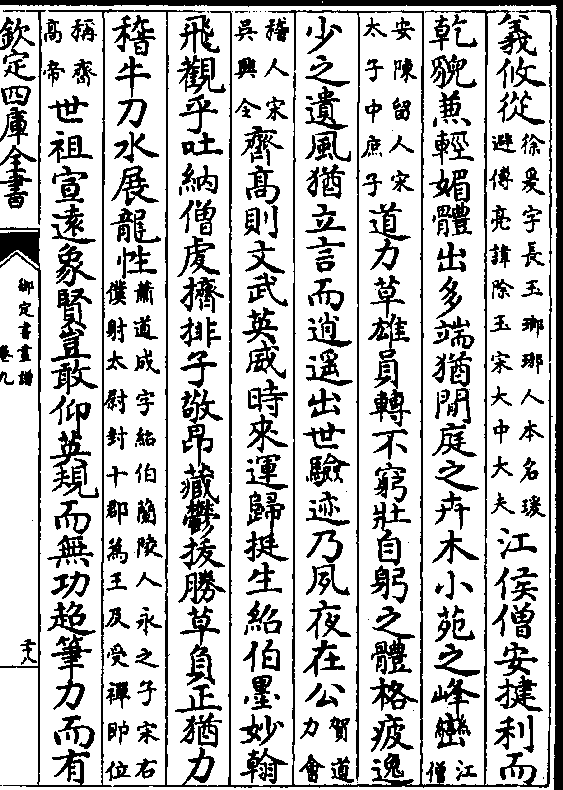 義攸從徐爰字長玉瑯琊人本名瑗避傅亮諱除玉宋大中大夫江侯僧安揵利而
乾貌蕪輕媚體出多端猶閒庭之卉木小苑之峰巒江僧
安陳留人宋太子中庶子道力草雄員轉不窮壯自躬之體格疲逸
少之遺風猶立言而逍遥出世驗迹乃夙夜在公賀道力會
稽人宋吳興令齊髙則文武英威時來運歸挺生紹伯墨妙翰
飛觀乎吐納僧虔擠排子敬昂藏鬱㧞勝草負正猶力
稽牛刀水展龍性蕭道成字紹伯蘭陵人永之子宋右僕射太尉封十郡為王及受禪即位
稱齊髙帝世祖宣逺象賢豈敢仰英規而無功超筆力而有
欽定四庫全書
御定書畫譜
卷九
二十八